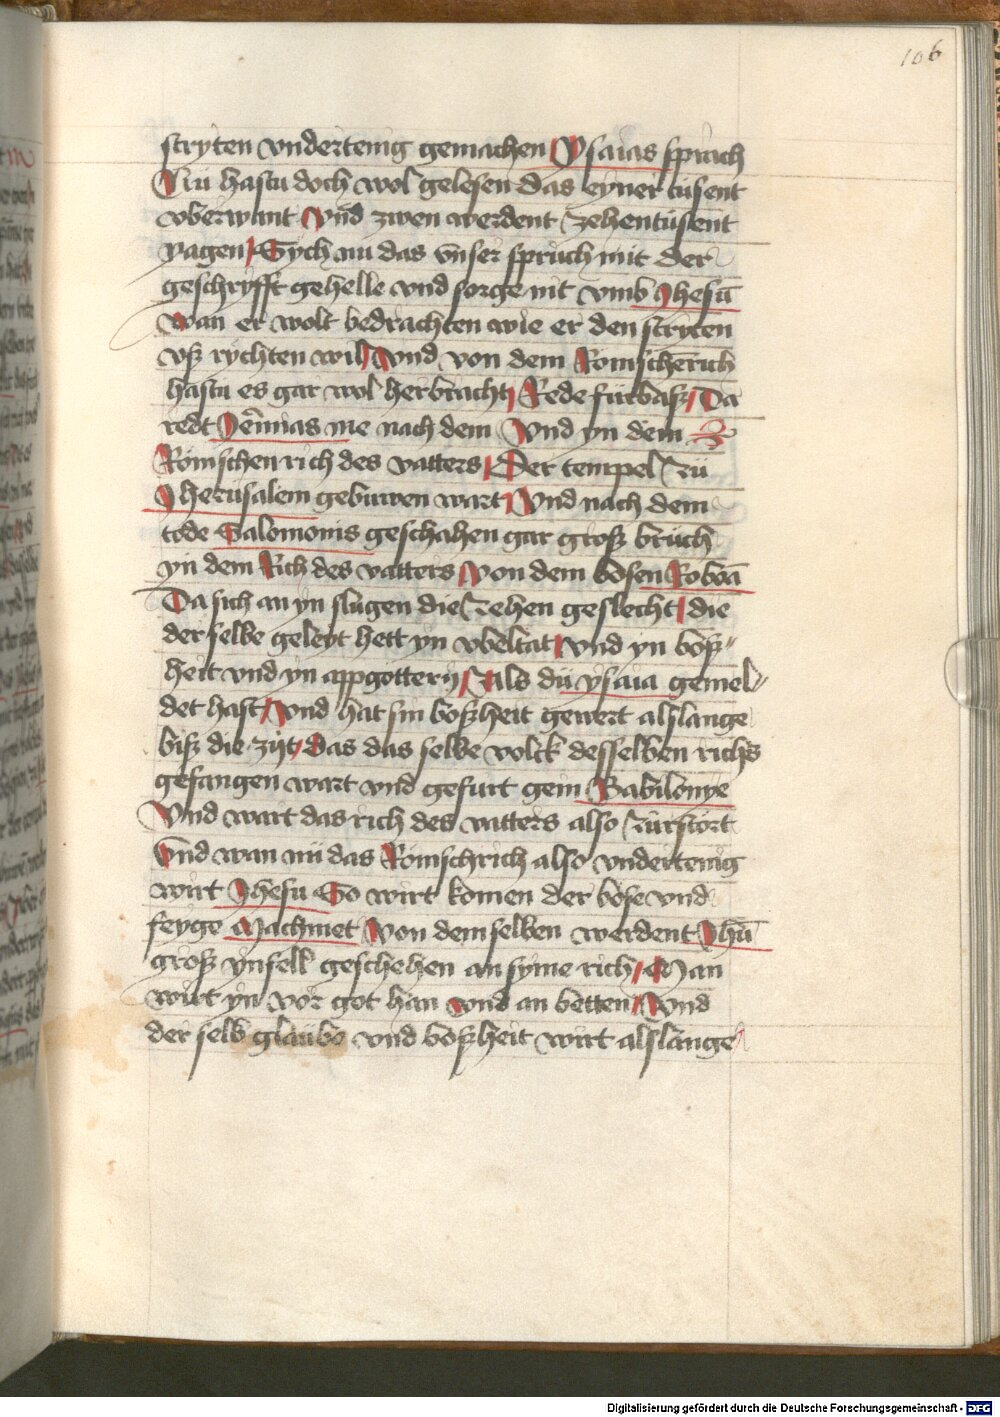 106
stryten vndertenig gemachen Ysaias sprach
Nü hastu doch wol gelesen das eyner tusent
vberwint vnd zwen werdent zehentusent
yagen Sych nu das vnser spruch mit der
geschryfft gehelle vnd sorge nit vmb Jhesū
wan er wolt bedrachten wie er den stryten
vß rychten wil vnd von dem Romscherich
hastu es gar wol herbracht Rede fürbaß Da
redt Jeremias me nach dem Vnd yn dem
Römschen rich des vatters Der tempel zu
Jherusalem gebuwen wart Vnd nach dem
tode Salomonis geschahen gar groß brüch
yn dem Rich des vatters von dem bosen Roboā
Da sich an yn slugen die zehen geslecht die
der selbe geleyt hett yn vbeltat vnd yn boß„
heit vnd yn appgottery Als dü ysaia gemel„
det hast vnd hat sin boßheit gewert alslange
biß die zijt das das selbe volck desselben richs
gefangen wart vnd gefurt gein Babilonye
Vnd wart das rich des vatters also zurstort
Vnd wan nü das Römschrich also vndertenig
wirt Jhesu So wirt komen der böse vnd
feyge Machmet Von dem selben werdent Jhū
groß vnfell geschehen an syme rich Man
wirt yn vor got han vnd an betten Vnd
der selb glaube vnd boßheit wirt alslange
Digitalisierung gefördert durch die Deutsche Forschungsgemeinschaft - DFG